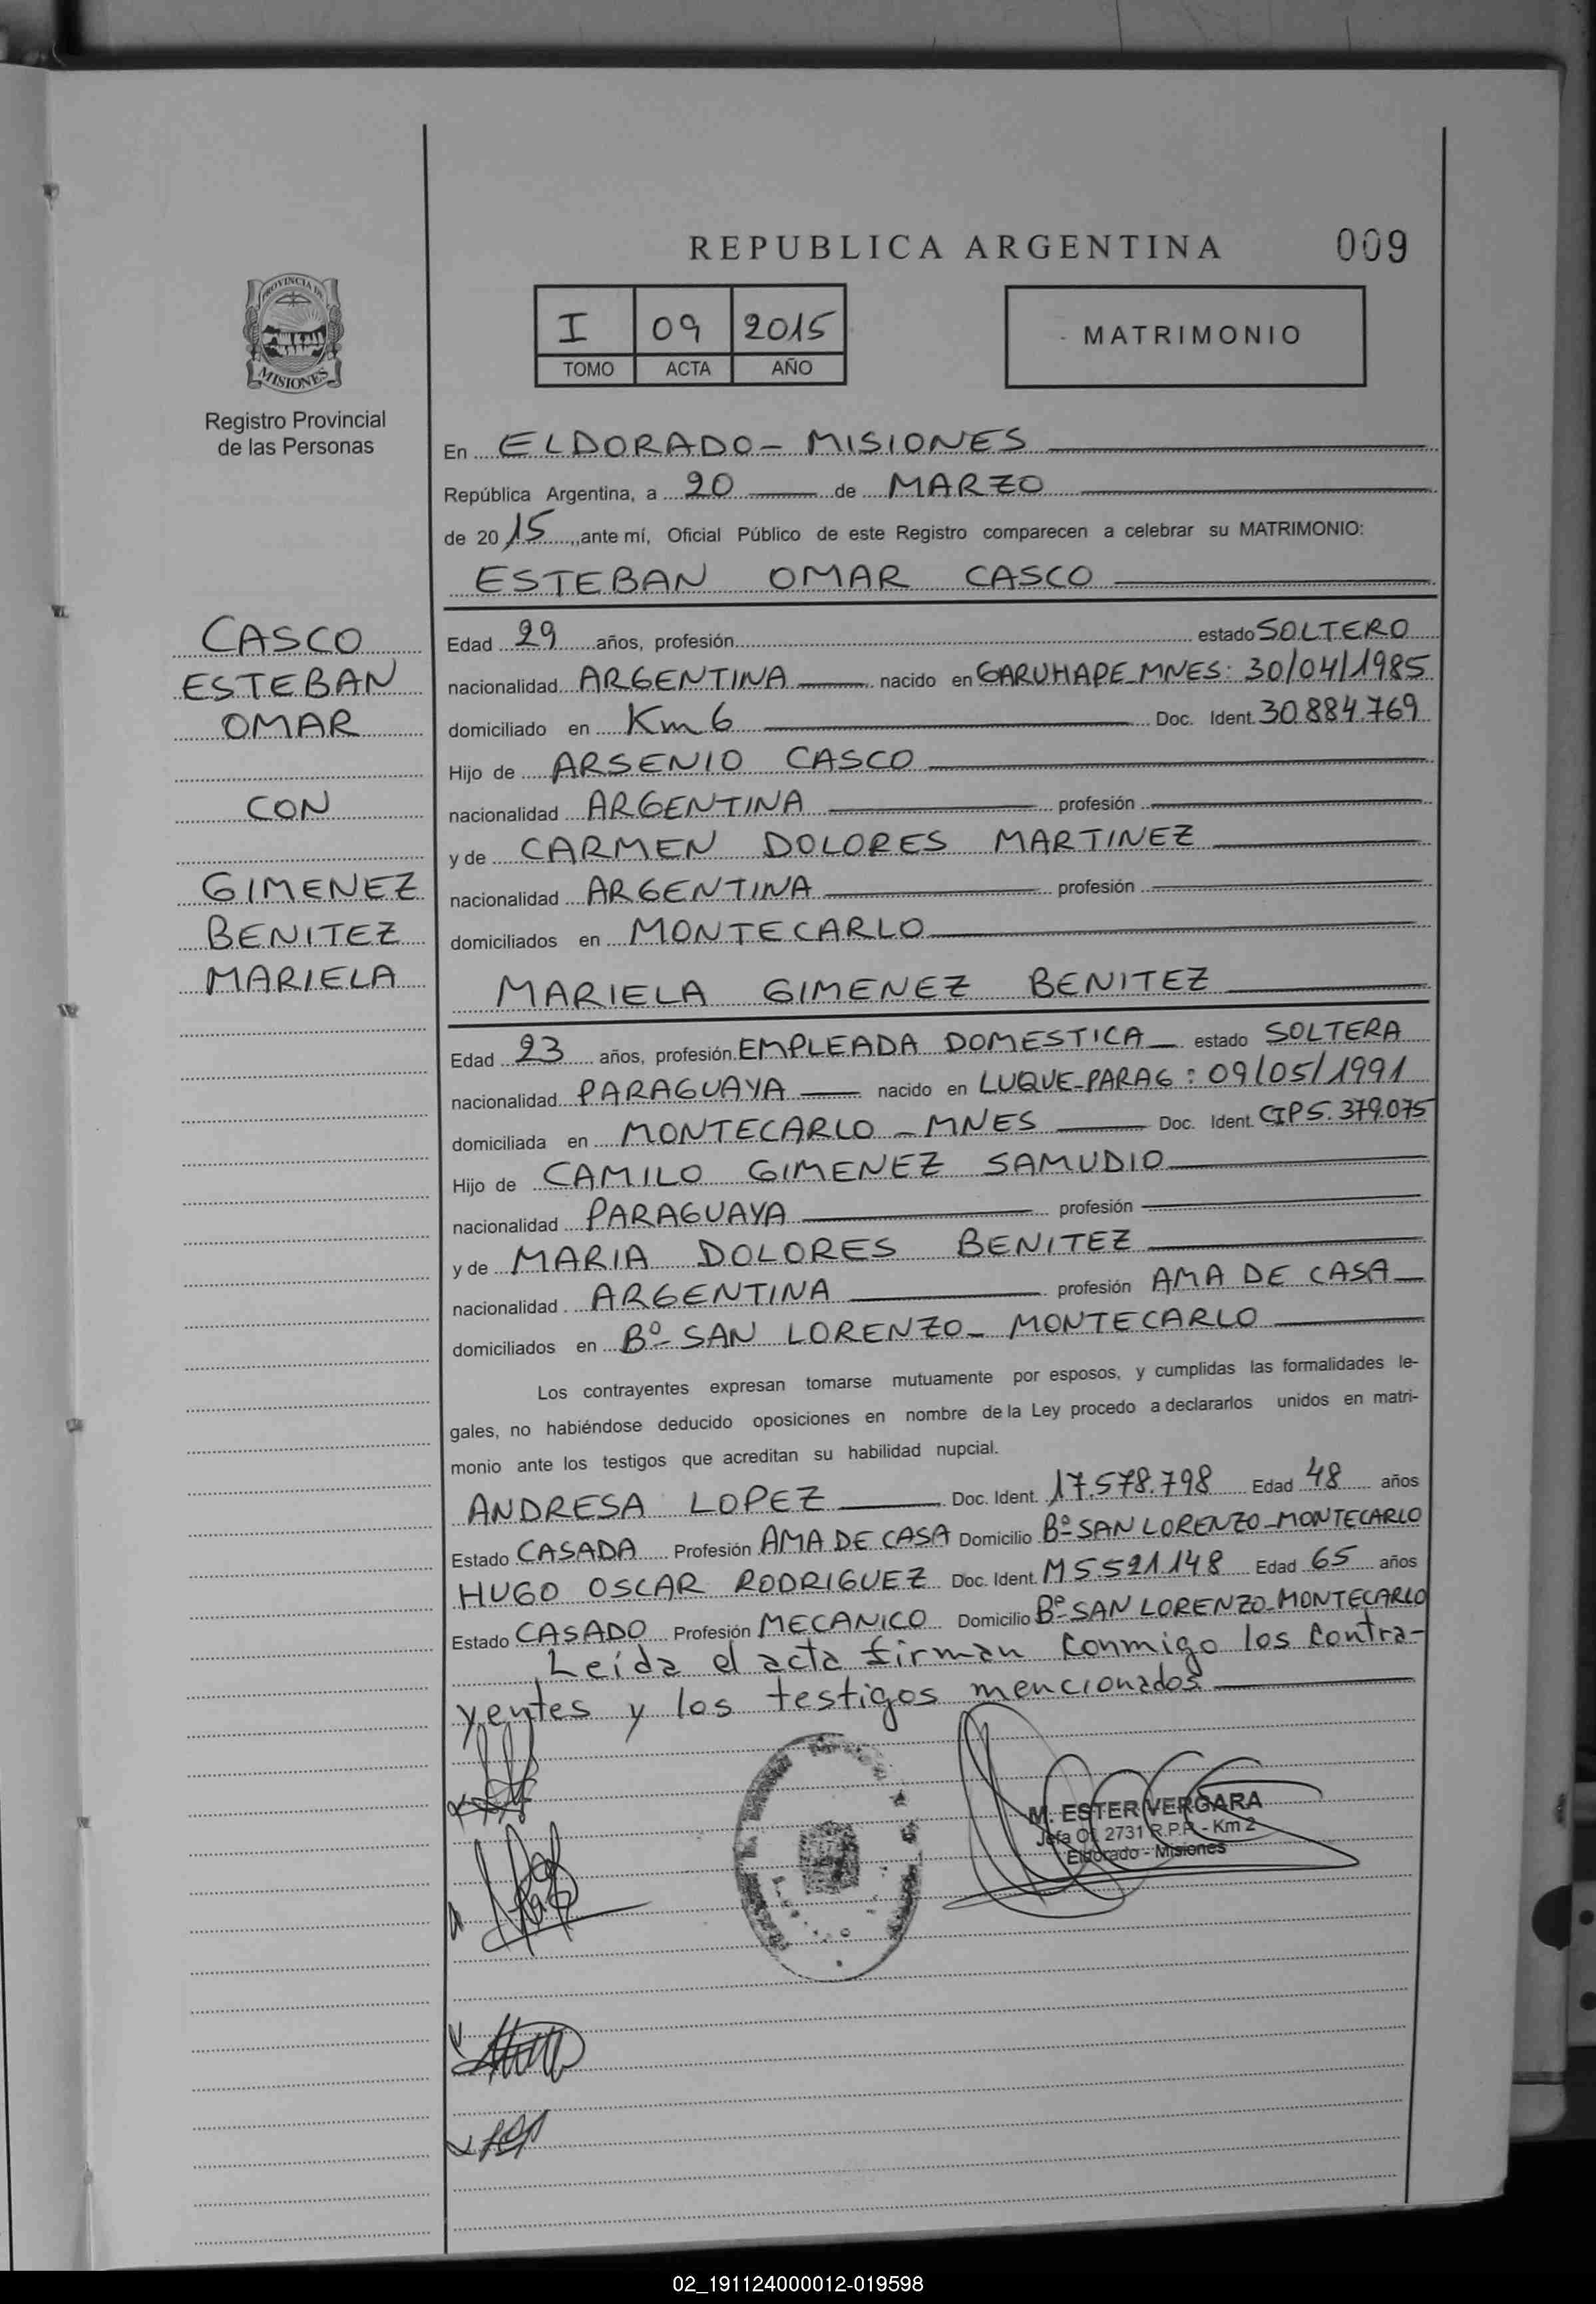 REPUBLICA ARGENTINA
009
PROVINCIA DE
MISIONES
Registro Provincial
de las Personas
I 09 2015
TOMO ACTA AÑO
MATRIMONIO
En ELDORADO - MISIONES
República Argentina, a 20 de MARZO
de 20 15, ante mí, Oficial Público de este Registro comparecen a celebrar su MATRIMONIO:
ESTEBAN OMAR CASCO
CASCO
ESTEBAN
OMAR
CON
GIMENEZ
BENITEZ
MARIELA
Edad 29 años, profesión estado SOLTERO
nacionalidad ARGENTINA nacido en GARUHAPE-MNES: 30/04/1985
domiciliado en Km 6 Doc. Ident. 30.884.769
Hijo de ARSENIO CASCO
nacionalidad ARGENTINA profesión
y de CARMEN DOLORES MARTINEZ
nacionalidad ARGENTINA profesión
domiciliados en MONTECARLO
MARIELA GIMENEZ BENITEZ
Edad 23 años, profesión EMPLEADA DOMESTICA estado SOLTERA
nacionalidad PARAGUAYA nacido en LUQUE-PARAG: 09/05/1991
domiciliada en MONTECARLO - MNES Doc. Ident. CIP 5.379.075
Hijo de CAMILO GIMENEZ SAMUDIO
nacionalidad PARAGUAYA profesión
y de MARIA DOLORES BENITEZ
nacionalidad ARGENTINA profesión AMA DE CASA
domiciliados en Bº- SAN LORENZO - MONTECARLO
Los contrayentes expresan tomarse mutuamente por esposos, y cumplidas las formalidades le-
gales, no habiéndose deducido oposiciones en nombre de la Ley procedo a declararlos unidos en matri-
monio ante los testigos que acreditan su habilidad nupcial.
ANDRESA LOPEZ Doc. Ident. 17.578.798 Edad 48 años
Estado CASADA Profesión AMA DE CASA Domicilio Bº- SAN LORENZO - MONTECARLO
HUGO OSCAR RODRIGUEZ Doc. Ident. M 5.521.148 Edad 65 años
Estado CASADO Profesión MECANICO Domicilio Bº- SAN LORENZO - MONTECARLO
Leída el acta firman conmigo los contra-
yentes y los testigos mencionados
M. ESTER VERGARA
Jefa Of. 2731 R.P.P. - Km 2
Eldorado - Misiones
02_191124000012-019598